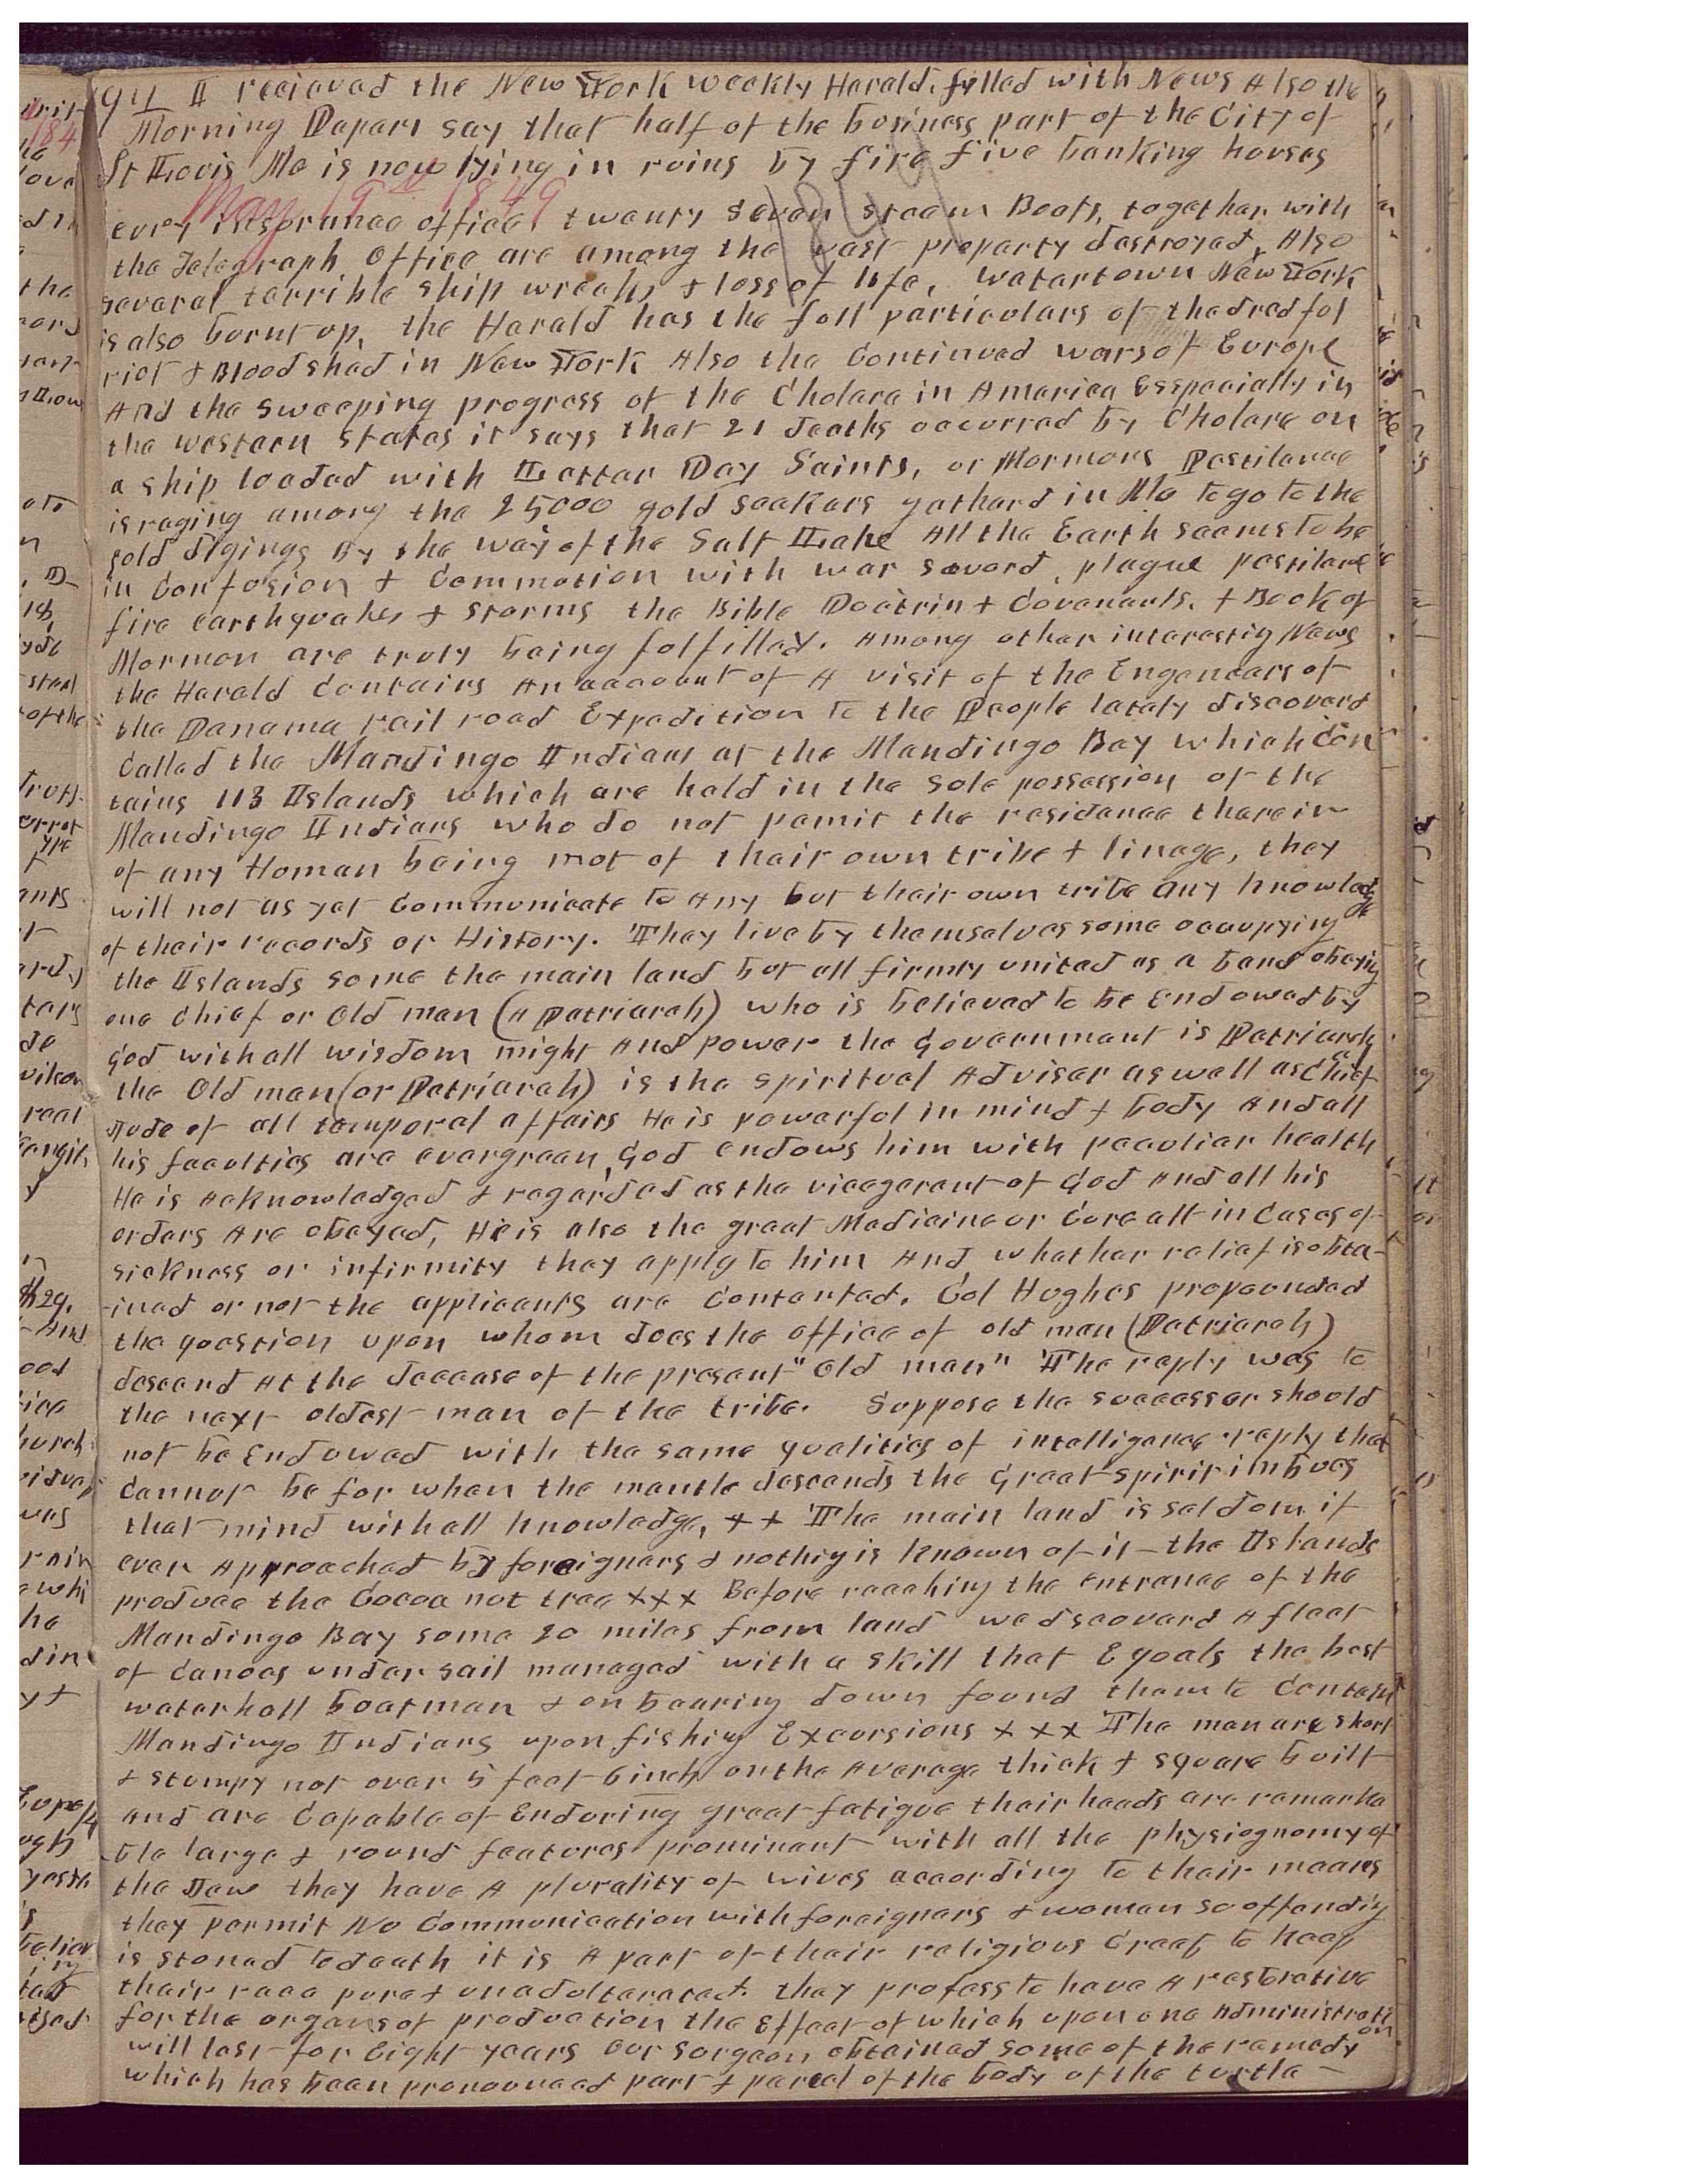 19th I recieved the New York weekly Herald. filled with News Also the
Morning Papers say that half of the business part of the City of
St Louis Mo is now lying in ruins by fire five banking houses
May 19th 1849
1849
evry insurance office twenty seven steam Boats, together with
the Telegraph Office are among the vast property destroyed, Also
several terrible ship wrecks & loss of life, Watertown New York
is also burnt up, the Harald has the full particulars of the dredful
riot & Blood shed in New York Also the Continued wars of Europe
And the sweeping progress of the Cholera in America Esspecially in
the western states it says that 21 deaths occurred by Cholera on
a ship loaded with Latter Day Saints, or Mormons Pestilence
is raging among the 25000 gold seekers gatherd in Mo to go to the
gold digings By the way of the Salt Lake All the Earth seems to be
in Confusion & Commotion with war sword, plague pestilence
fire earthquakes & storms the Bible Doctrin & Covenants. & Book of
Mormon are truly being fulfilled. Among other interestig News
the Harald Contains An account of A visit of the Engeneers of
the Panama rail road Expedition to the People lately discoverd
Called the Mandingo Indians at the Mandingo Bay which Con
tains 113 Islands which are held in the sole possession of the
Mandingo Indians who do not pamit the residence therein
of any Human being not of their own tribe & linage, they
will not as yet Communicate to Any but their own tribe any knowledge
of their records or History. They live by themselves some occupying
the Islands some the main land but all firmly united as a band obeyig
one Chief or Old man (A patriarch) who is believed to be Endowed by
God with all wisdom might And power the Government is Patriarchal
the Old man (or Patriarch) is the spiritual Adviser as well as Chief
Jude of all temporal affairs He is powerful in mind & body And all
his faculties are evergreen, God endows him with peculiar health
He is Acknowledged & regarded as the vicegerent of God And all his
orders Are obeyed, He is also the great Medicine or Cure all in Cases of
sickness or infirmity they apply to him And whether relief is obta-
-ined or not the applicants are Contented. Col Hughes propounded
the question upon whom does the office of old man (Patriarch)
descend At the decease of the present "Old man" The reply was to
the next oldest man of the tribe. Suppose the successer should
not be Endowed with the same qualities of intelligence reply that
Cannot be for when the mantle descends the Great spirit imbues
that mind with all knowledge, ++ The main land is seldom if
ever Approached by foreigners & nothig is known of it - the Islands
produce the Cocoa nut tree xxx Before reaching the entrance of the
Mandingo Bay some 20 miles from land we dscoverd A fleet
of Canoes under sail managed with a skill that Equals the best
waterhall boatman & on bearing down found them to Contain
Mandingo Indians upon fishig Excursions xxx The men are short
& stumpy not over 5 feet 6 inch on the Average thick & square built
and are Capable of Enduring great fatigue their heads are remarka
ble large & round features prominent with all the physiognomy of
the Jew they have A plurality of wives according to their means
they permit No Communication with foreigners & woman so offendig
is stoned to death it is A part of their religious Creed to keep
their race pure & unadulterated. they profess to have A restorative
for the organs of production the Effect of which upon one Administration
will last for Eight years our surgeon obtained some of the remedy
which has been pronounced part & parcel of the body of the turtle -